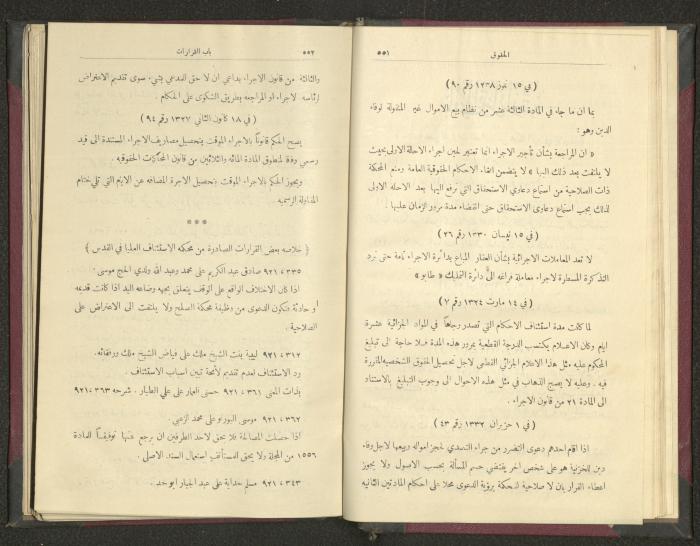 ٥٥١
الحقوق
( في ١٥ تموز ١٣٢٨ رقم ٩٠ )
بما ان ما جاء في المادة الثالثة عشر من نظام بيع الاموال غير المنقولة لوفاء
الدين وهو :
« ان المراجعة بشأن تأجير الاجراء انما تعتبر لحين اجراء الاحالة الاولى بحيث
لا يلتفت بعد ذلك اليها » لا يتضمن الغاء الاحكام الحقوقية العامة ومنع المحكمة
ذات الصلاحية من استماع دعاوي الاستحقاق التي ترفع اليها بعد الاحالة الاولى
لذلك يجب استماع دعاوى الاستحقاق حتى انقضاء مدة مرور الزمان عليها .
( في ١٥ نيسان ١٣٣٠ رقم ٢٦ )
لا تعد المعاملات الاجرائية بشأن العقار المباع بدائرة الاجراء تامة حتى ترد
التذكرة المسطرة لاجراء معاملة فراغه الى دائرة التمليك « طابو »
( في ١٤ مارت ١٣٢٤ رقم ٧ )
لما كانت مدة استئناف الاحكام التي تصدر وجاهاً في المواد الجزائية عشرة
ايام وكان الاعلام يكتسب الدرجة القطعية بمرور هذه المدة فلا حاجة الى تبليغ
المحكوم عليه مثل هذا الاعلام الجزائي القطعي لاجل تحصيل الحقوق الشخصيه المقررة
فيه . وعليه لا يصح الذهاب في مثل هذه الاحوال الى وجوب التبليغ بالاستناد
الى المادة ٢١ من قانون الاجراء .
( في ١ حزيران ١٣٣٢ رقم ٤٣ )
اذا اقام احدهم دعوى التضرر من جراء التصدي لحجز امواله وبيعها لاجل وفاء
دين للخزينة هو على شخص اخر يقتضي حسم المسألة بحسب الاصول ولا يجوز
اعطاء القرار بان لا صلاحية للمحكمة برؤية الدعوى محلا على احكام المادتين الثانيه
٥٥٢
باب القرارات
والثالثة من قانون الاجراء بداعي ان لا حق للمدعي بشيء سوى تقديم الاعتراض
لرئاسه لاجراء او المراجعه بطريق الشكوى على الحكام .
( في ١٨ كانون الثاني ١٣٢٧ رقم ٩٤ )
يصح الحكم قانوناً بالاجراء الموقت بتحصيل مصاريف الاجراء المستندة الى قيد
رسمي وفقا لمنطوق المادة المائه والثلاثين من قانون المحاكمات الحقوقيه .
ويجوز الحكم بالاجراء الموقت بتحصيل الاجرة المضافه عن الايام التي تلي ختام
المقاولة الرسميه
***
﴿ خلاصه بعض القرارات الصادرة من محكمه الاستئناف العليا في القدس ﴾
٣٣٥ ، ٩٢١ صادق عبد الكريم على محمد وعبد الله ولدي الحاج موسى .
اذا كان الاختلاف الواقع على الوقف يتعلق بجهه وضاعه اليد اذا كانت قديمه
او حادثة فتكون الدعوى من وظيفة محكمة الصلح ولا يلتفت الى الاعتراض على
الصلاحية .
٣١٢ ، ٩٢١ لبيبة بنت الشيخ ملك على فياض الشيخ ملك ورفقائه .
رد الاستئناف لعدم تقديم لائحة تبين اسباب الاستئناف .
بذات المعنى ٣٦١ ، ٩٢١ حسني العمار على علي الطيار . شرحه ٣٦٣ ، ٩٢١
٣٦٢ ، ٩٢١ موسى البورنو على محمد الزعبي .
اذا حصلت المصالحة فلا يحق لاحد الطرفين ان يرجع عنها توفيقاً للمادة
١٥٥٦ من المجلة ولا يحق للمستأنف استعمال السند الاصلي .
٣٤٣ ، ٩٢١ مسلم حدابة على عبد الجبار ابو حمد .